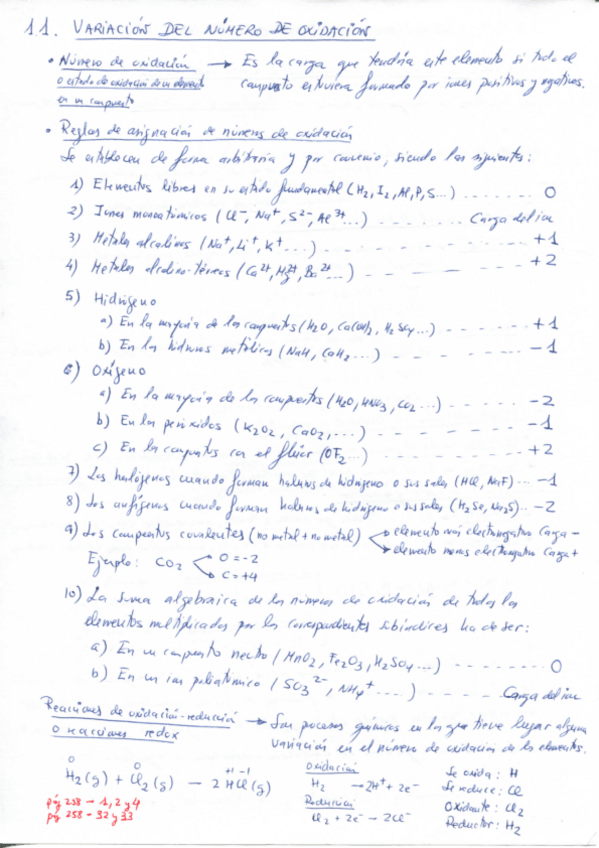 1.1. VARIACIÓN DEL NÚMERO DE OXIDACIÓN
• Número de oxidación → Es la carga que tendría este elemento si todo el
o estado de oxidación de un elemento compuesto estuviera formado por iones positivos y negativos.
en un compuesto
• Reglas de asignación de números de oxidación
Se establecen de forma arbitraria y por convenio, siendo las siguientes:
1) Elementos libres en su estado fundamental (H2, I2, Al, P, S...) ------- 0
2) Iones monoatómicos (Cl⁻, Na⁺, S²⁻, Al³⁺...) ------- Carga del ion
3) Metales alcalinos (Na⁺, Li⁺, K⁺....) ------- +1
4) Metales alcalino-térreos (Ca²⁺, Mg²⁺, Ba²⁺...) ------- +2
5) Hidrógeno
a) En la mayoría de los compuestos (H2O, Ca(OH)2, H2SO4...) ------- +1
b) En los hidruros metálicos (NaH, CaH2....) ------- -1
6) Oxígeno
a) En la mayoría de los compuestos (H2O, HNO3, CO2...) ------- -2
b) En los peróxidos (K2O2, CaO2,...) ------- -1
c) En los compuestos con el flúor (OF2...) ------- +2
7) Los halógenos cuando forman haluros de hidrógeno o sus sales (HCl, NaF)... -1
8) Los anfígenos cuando forman haluros de hidrógeno o sus sales (H2Se, Na2S).. -2
9) Los compuestos covalentes (no metal + no metal) → elemento más electronegativo Carga -
→ elemento menos electronegativo Carga +
Ejemplo: CO2 O = -2
C = +4
10) La suma algebraica de los números de oxidación de todos los
elementos multiplicados por los correspondientes subíndices ha de ser:
a) En un compuesto neutro (MnO2, Fe2O3, H2SO4...) ------- 0
b) En un ion poliatómico (SO3²⁻, NH4⁺....) ------- Carga del ion
Reacciones de oxidación-reducción → Son procesos químicos en los que tiene lugar alguna
o reacciones redox variación en el número de oxidación de los elementos.
0 0 +1 -1
H2(g) + Cl2(g) → 2 HCl(g)
pág 258 - 1, 2 y 4
pág 258 - 32 y 33
Oxidación
H2 → 2H⁺ + 2e⁻
Reducción
Cl2 + 2e⁻ → 2Cl⁻
Se oxida: H
Se reduce: Cl
Oxidante: Cl2
Reductor: H2